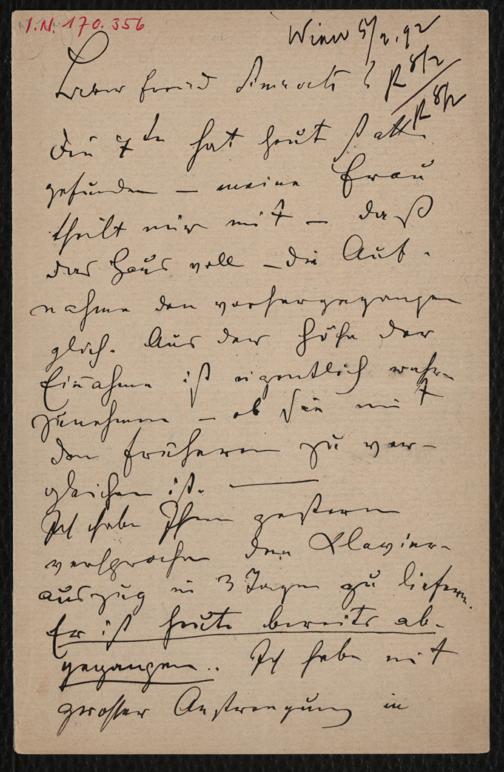 I.N. 170.356
Wien 5/2. 92
R 8/2
R 8/2
Lieber Freund Simrock!
Die 7te hat heut statt
gefunden – meine Frau
theilt mir mit – daß
das Haus voll – die Auf-
nahme den vorhergegangen
glich. Aus der Höhe der
Einahme ist eigentlich wahr-
zunehmen – ob sie mit
den früheren zu ver-
gleichen ist. –
Ich habe Ihnen gestern
versprochen den Klavier-
auszug in 3 Tagen zu liefern.
Er ist heute bereits ab-
gegangen.. Ich habe mit
grosser Anstrengung in